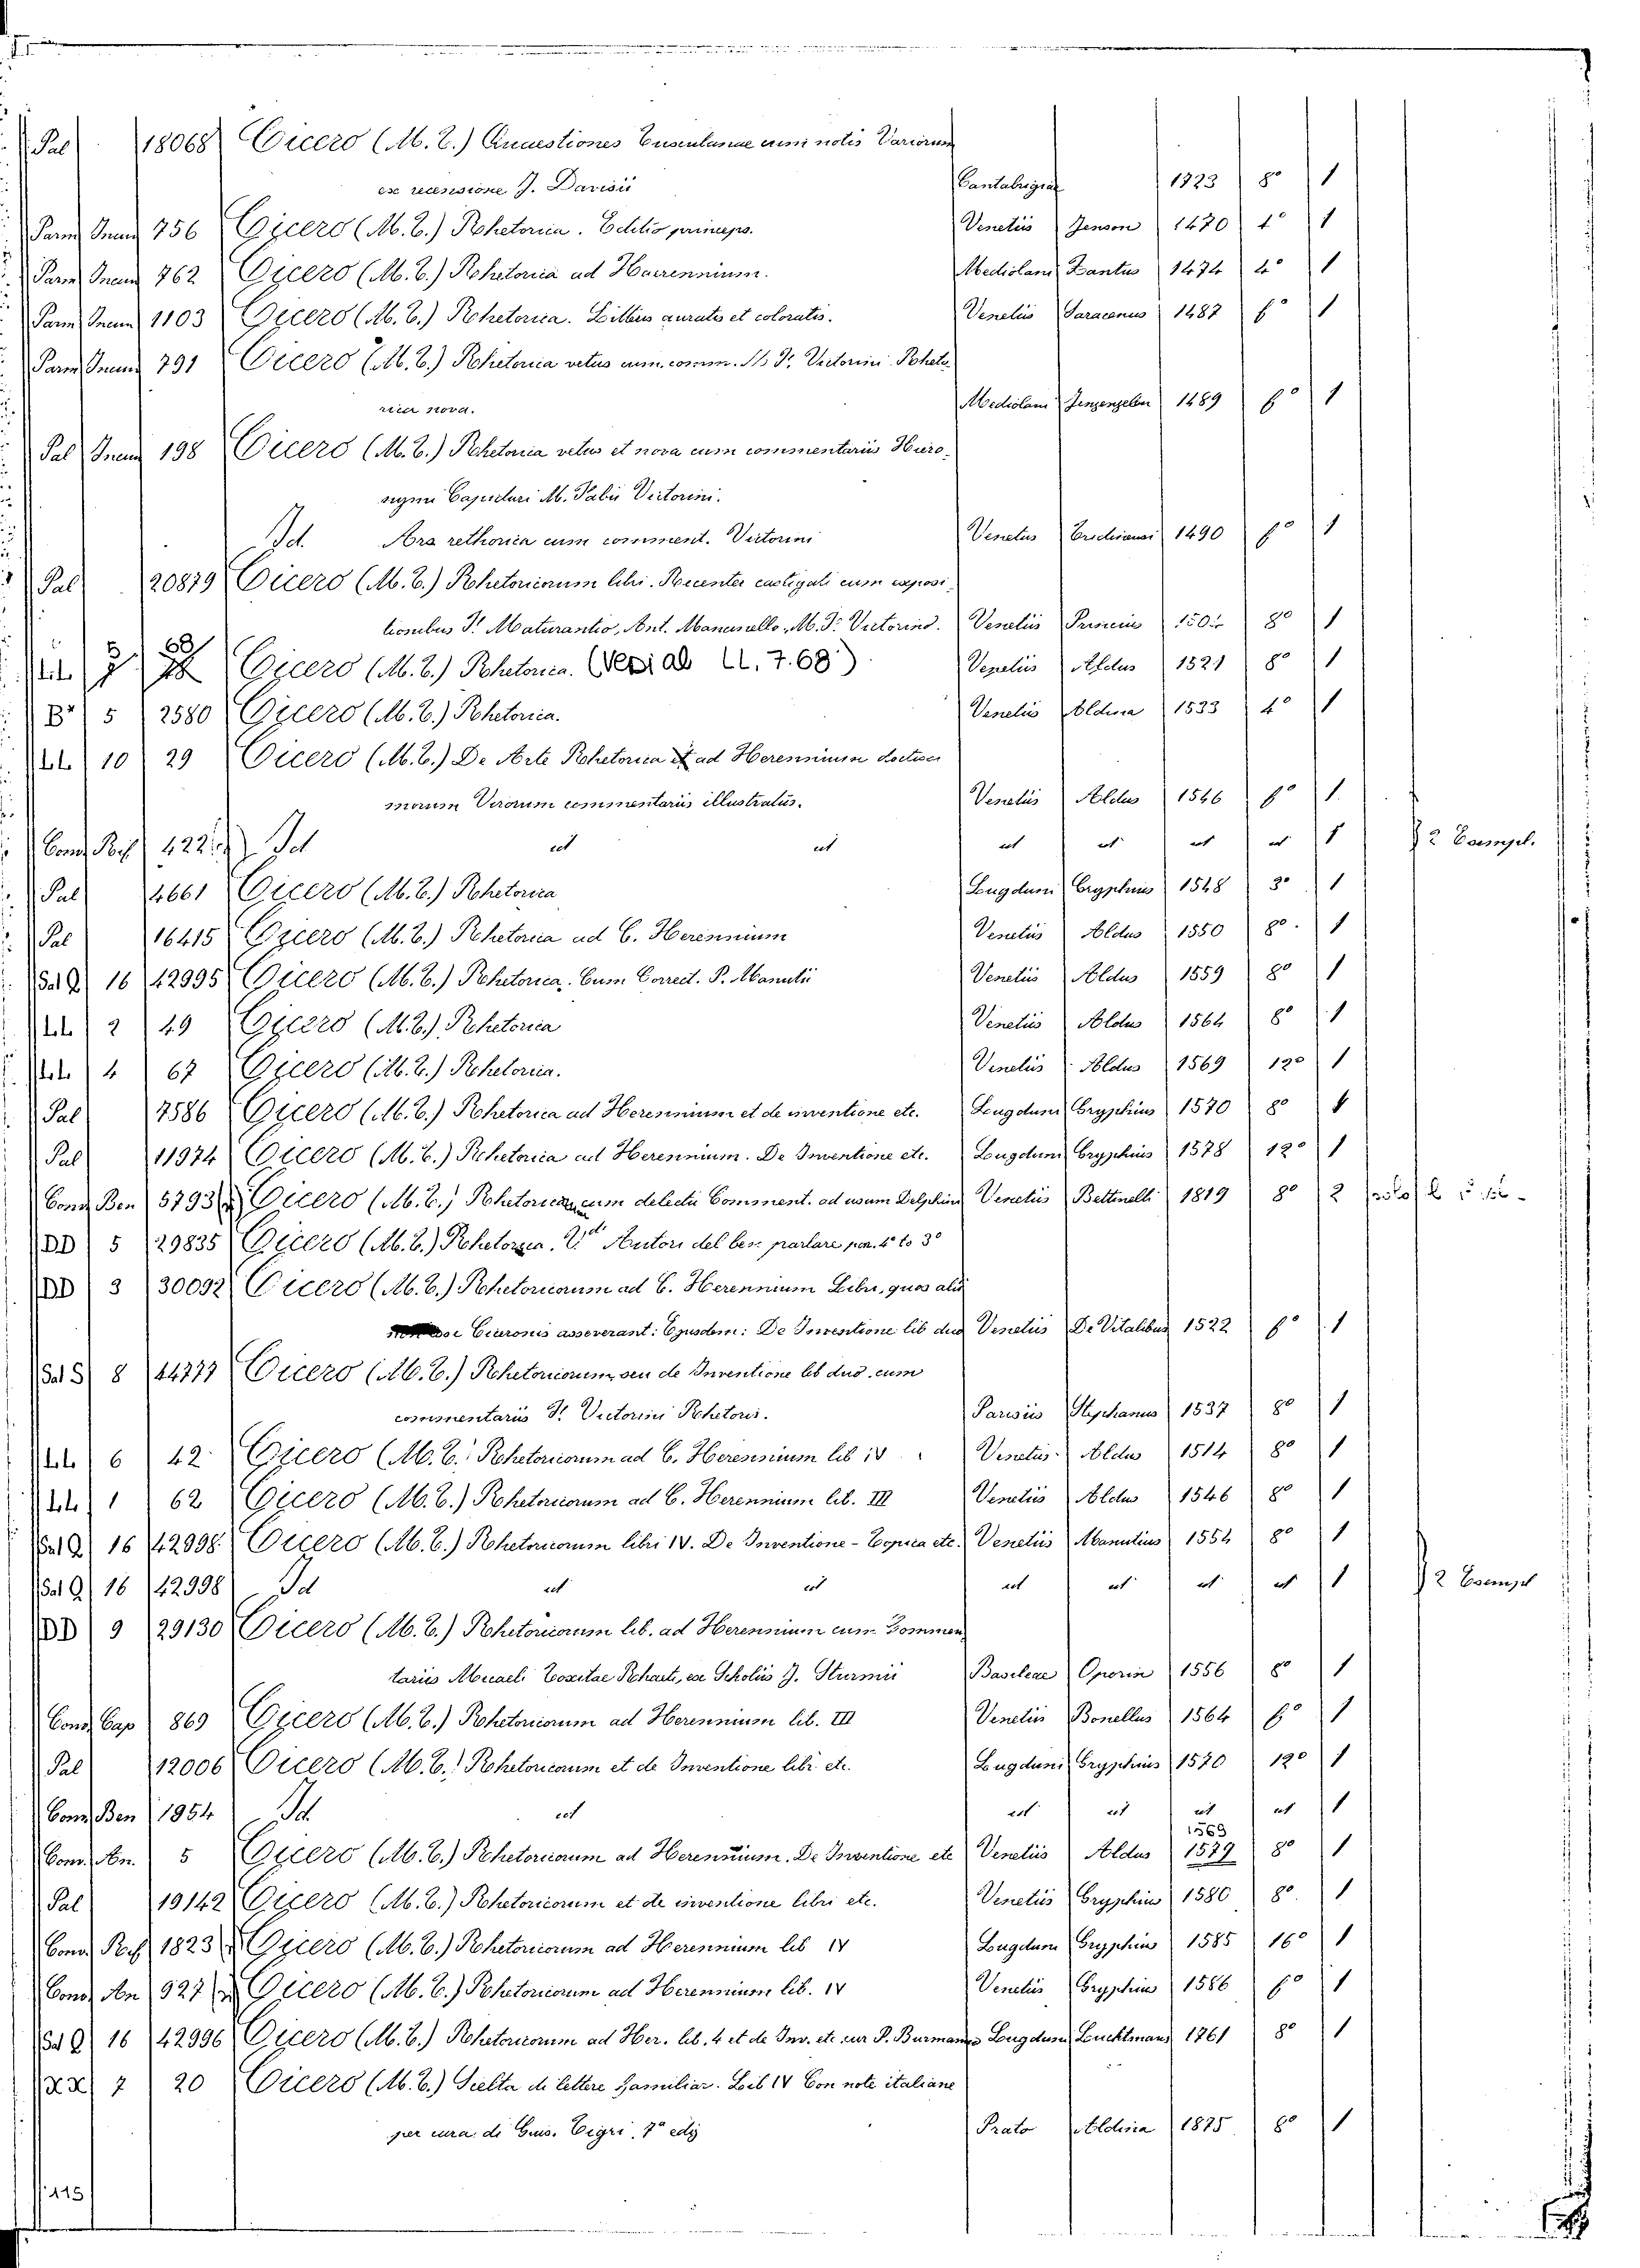 Pal 18068 Cicero (M. T.) Quaestiones Tusculanae cum notis Variorum
ex recensione J. Davisii Cantabrigiae 1723 8° 1
Parm Incun 756 Cicero (M. T.) Rhetorica. Editio princeps. Venetiis Jenson 1470 4° 1
Parm Incun 762 Cicero (M. T.) Rhetorica ad Haerennium. Mediolani Zantus 1474 4° 1
Parm Incun 1103 Cicero (M. T.) Rhetorica. Litteris auratis et coloratis. Venetiis Saracenus 1487 f° 1
Parm Incun 791 Cicero (M. T.) Rhetorica vetus cum comm. F. Victorini Rheto
rica nova. Mediolani 1489 f° 1
Pal Incun 198 Cicero (M. T.) Rhetorica vetus et nova cum commentariis Hiero-
nymi Capiduri M. Fabii Victorini.
Id. Ars rethorica cum comment. Victorini Venetiis 1490 f° 1
Pal 20879 Cicero (M. T.) Rhetoricorum libri. Recenter castigati cum exposi
tionibus F. Maturantio, Ant. Mancinello, M. F. Victorino. Venetiis 8° 1
LL 7 68 Cicero (M. T.) Rhetorica. (Vedi al LL. 7. 68) Venetiis Aldus 1521 8° 1
Bª 5 2580 Cicero (M. T.) Rhetorica. Venetiis Aldina 1533 4° 1
LL 10 29 Cicero (M. T.) De Arte Rhetorica ad Herennium doctissi
morum Virorum commentariis illustratus. Venetiis Aldus 1546 f° 1
Conv. Rif. 422 Id ut ut ut ut ut ut 1 2 Esempl.
Pal 4661 Cicero (M. T.) Rhetorica Lugduni Gryphius 1548 1
Pal 16415 Cicero (M. T.) Rhetorica ad C. Herennium Venetiis Aldus 1550 8° 1
Sal Q 16 42995 Cicero (M. T.) Rhetorica. Cum Correct. P. Manutii Venetiis Aldus 1559 8° 1
LL 2 49 Cicero (M. T.) Rhetorica Venetiis Aldus 1564 8° 1
LL 4 67 Cicero (M. T.) Rhetorica. Venetiis Aldus 1569 12° 1
Pal 7586 Cicero (M. T.) Rhetorica ad Herennium et de inventione etc. Lugduni Gryphius 1570 8° 1
Pal 11974 Cicero (M. T.) Rhetorica ad Herennium. De Inventione etc. Lugduni Gryphius 1578 12° 1
Conv Ben 5793 Cicero (M. T.) Rhetorica cum delectu Comment. ad usum Delphini Venetiis Bettinelli 1819 8° 2
DD 5 29835 Cicero (M. T.) Rhetorica. Vᵈ Autori del ben parlare par. 4ª to 3°
DD 3 30092 Cicero (M. T.) Rhetoricorum ad C. Herennium Libri, quos alii
esse Ciceronis asseverant: Ejusdem: De Inventione lib duo Venetiis De Vitalibus 1522 f° 1
Sal S 8 44777 Cicero (M. T.) Rhetoricorum, seu de Inventione lib duo, cum
commentariis F. Victorini Rhetoris. Parisiis Stephanus 1537 8° 1
LL 6 42 Cicero (M. T.) Rhetoricorum ad C. Herennium lib IV Venetiis Aldus 1514 8° 1
LL 1 62 Cicero (M. T.) Rhetoricorum ad C. Herennium lib. III Venetiis Aldus 1546 8° 1
Sal Q 16 42998. Cicero (M. T.) Rhetoricorum libri IV. De Inventione - Topica etc. Venetiis Manutius 1554 8° 1
Sal Q 16 42998 Id ut ut ut ut ut ut 1 2 Esempl
DD 9 29130 Cicero (M. T.) Rhetoricorum lib. ad Herennium cum Commen
tariis Micaeli Toxitae Rhaeti, ex Scholiis J. Sturmii Basileae Oporin 1556 8° 1
Conv. Cap 869 Cicero (M. T.) Rhetoricorum ad Herennium lib. III Venetiis Bonellus 1564 f° 1
Pal 12006 Cicero (M. T.) Rhetoricorum et de Inventione libri etc. Lugduni Gryphius 1570 12° 1
Conv. Ben 1954 Id. ut ut ut ut ut 1
1569
Conv. An. 5 Cicero (M. T.) Rhetoricorum ad Herennium. De Inventione etc Venetiis Aldus 1579 8° 1
Pal 19142 Cicero (M. T.) Rhetoricorum et de inventione libri etc. Venetiis Gryphius 1580 8° 1
Conv. Rif 1823 Cicero (M. T.) Rhetoricorum ad Herennium lib IV Lugduni Gryphius 1585 16° 1
Conv. An 927 Cicero (M. T.) Rhetoricorum ad Herennium lib. IV Venetiis Gryphius 1586 f° 1
Sal Q 16 42996 Cicero (M. T.) Rhetoricorum ad Her. lib. 4 et de Inv. etc cur P. Burmanno Lugduni Luchtmans 1761 8° 1
XX 7 20 Cicero (M. T.) Scelta di lettere familiar. Lib IV Con note italiane
per cura di Gius. Tigri. 7ª ediz Prato Aldina 1875 8° 1
115